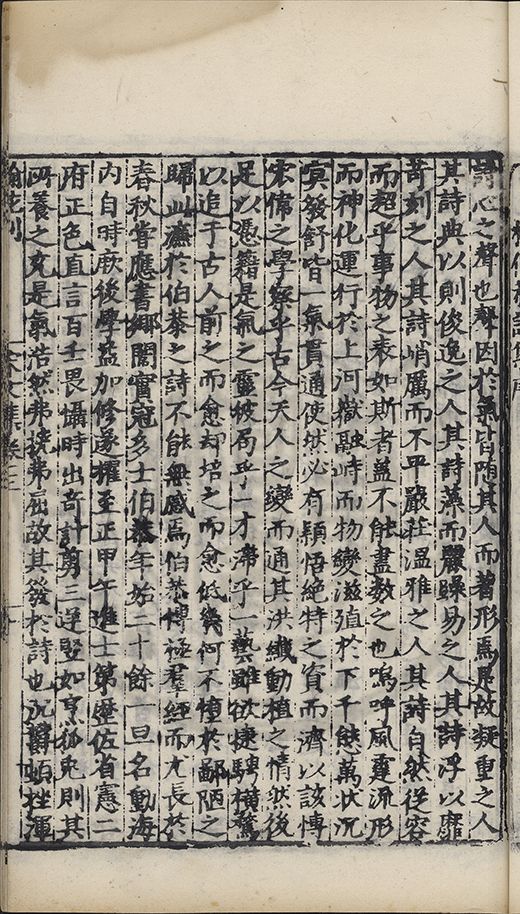 詩心之聲也聲因於氣皆隨其人而著形焉是故凝重之人
其詩典以則俊逸之人其詩藻而麗躁易之人其詩浮以靡
苛刻之人其詩峭厲而不平嚴莊溫雅之人其詩自然從容
而超乎事物之表如斯者蓋不能盡数之也嗚呼風霆流形
而神化運行於上河嶽融峙而物變滋殖於下千態萬狀沉
冥發舒皆一氣貫通使然必有穎悟絕特之資而濟以該博
宏偉之學察乎古今天人之變而通其洪纖動植之情然後
足以憑籍是氣之靈彼局乎一才滯乎一藝雖欲捷騁橫騖
以追于古人前之而愈却培之而愈低幾何不墮於鄙陋之
歸此濂於伯恭之詩不能無感焉伯恭博極羣經而尤長於
春秋嘗應書鄉闈實冠多士伯恭年始二十餘一旦名動海
內自時厥後學益加修遂擢至正甲午進士第歷佐省憲二
府正色直言百壬畏懾時出奇計剪三逆豎如烹狐兔則其
所養之充是氣浩然弗撓弗屈故其發於詩也沉鬱頓挫渾